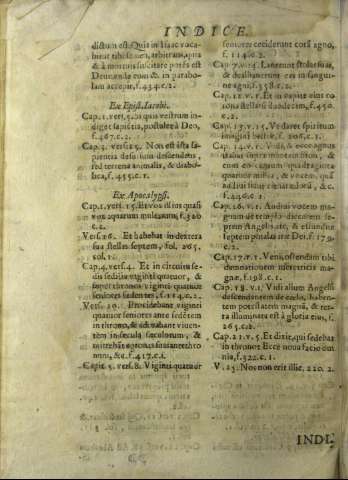 INDICE
dictum est. Quia in Isaac voca-
bitur tibi semen, arbitrans, quia
& à mortuis suscitare potis est
Deus, unde eum & in parabo-
lam accepit, f. 434. c. 2.
Ex Epist. Iacobi.
Cap. 1. vers. 5. Si quis vestrum in-
diget sapiẽtia, postulet à Deo,
f. 267. c. 2.
Cap. 3. vers. 15. Non est ista sa-
pientia desursum descendens,
sed terrena animalis, & diabo-
lica, f. 455. c. 1.
Ex Apocalypsi.
Cap. 1. vers. 15. Et vox illius quasi
vox aquarum multarum, f. 326
c. 2.
Vers. 16. Et habebat in dextera
sua stellas septem, fol. 265.
col. 1.
Cap. 4. vers. 4. Et in circuitu se-
dis sedilia viginti quatuor, &
super thronos viginti quatuor
seniores sedentes, f. 114. c. 2.
Vers. 10. Procidebant viginti
quatuor seniores ante sedẽtem
in throno, & adorabant viven-
tem in sæcula sæculorum, &
mittebãt coronas suas ante thro
num, &c. f. 417. c. 1.
Capit. 5. vers. 8. Viginti quatuor
seniores ceciderunt corã agno,
f. 114. c. 2.
Cap. 7. v. 14. Laverunt stolas suas,
& dealbaverunt eas in sangui-
ne agni, f. 358. c. 2.
Cap. 12. v. 1. Et in capite eius co
rona stellarũ duodecim, f. 450.
c. 2.
Cap. 13. v. 15. Ut daret spiritum
imagini bestiæ, f.
Cap. 14. v. 1. Vidi, & ecce agnus
stabat supra montem Sion, &
cum eo centum quadraginta
quatuor millia, & vocem, quã
audivi sicut citharœdorũ, &c.
Cap. 16. v. 1. Audivi vocem ma-
gnam de templo dicentem se-
ptem Angelis: ite, & effundite
septem phialas iræ Dei. f. 179.
c. 2.
Cap. 17. v. 1. Veni, ostendam tibi
damnationem meretricis ma-
gnæ, f. 198. c. 1.
Cap. 18. v. 1. Vidi alium Angelũ
descendentem de cælo, haben-
tem potestatem magnã, & ter-
ra illuminata est à gloria eius, f.
265. c. 2.
Cap. 21. v. 5. Et dixit, qui sedebat
in throno: Ecce nova facio om
nia, f. 322. c. 1.
V. 25. Nox non erit illic. 220. 2.
INDI-